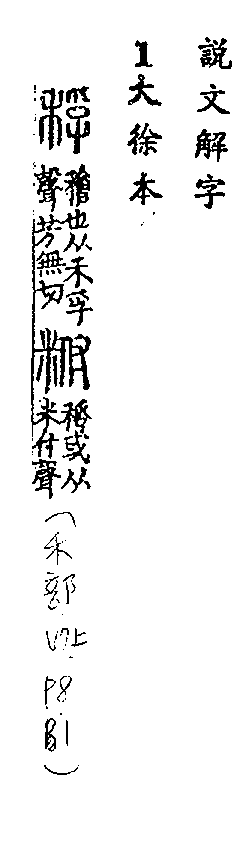 說文解字
1大徐本
稃
𥢶也从禾孚
聲芳無切
䊇
稃或从
米付聲
(禾部 V7上 P8 B1)